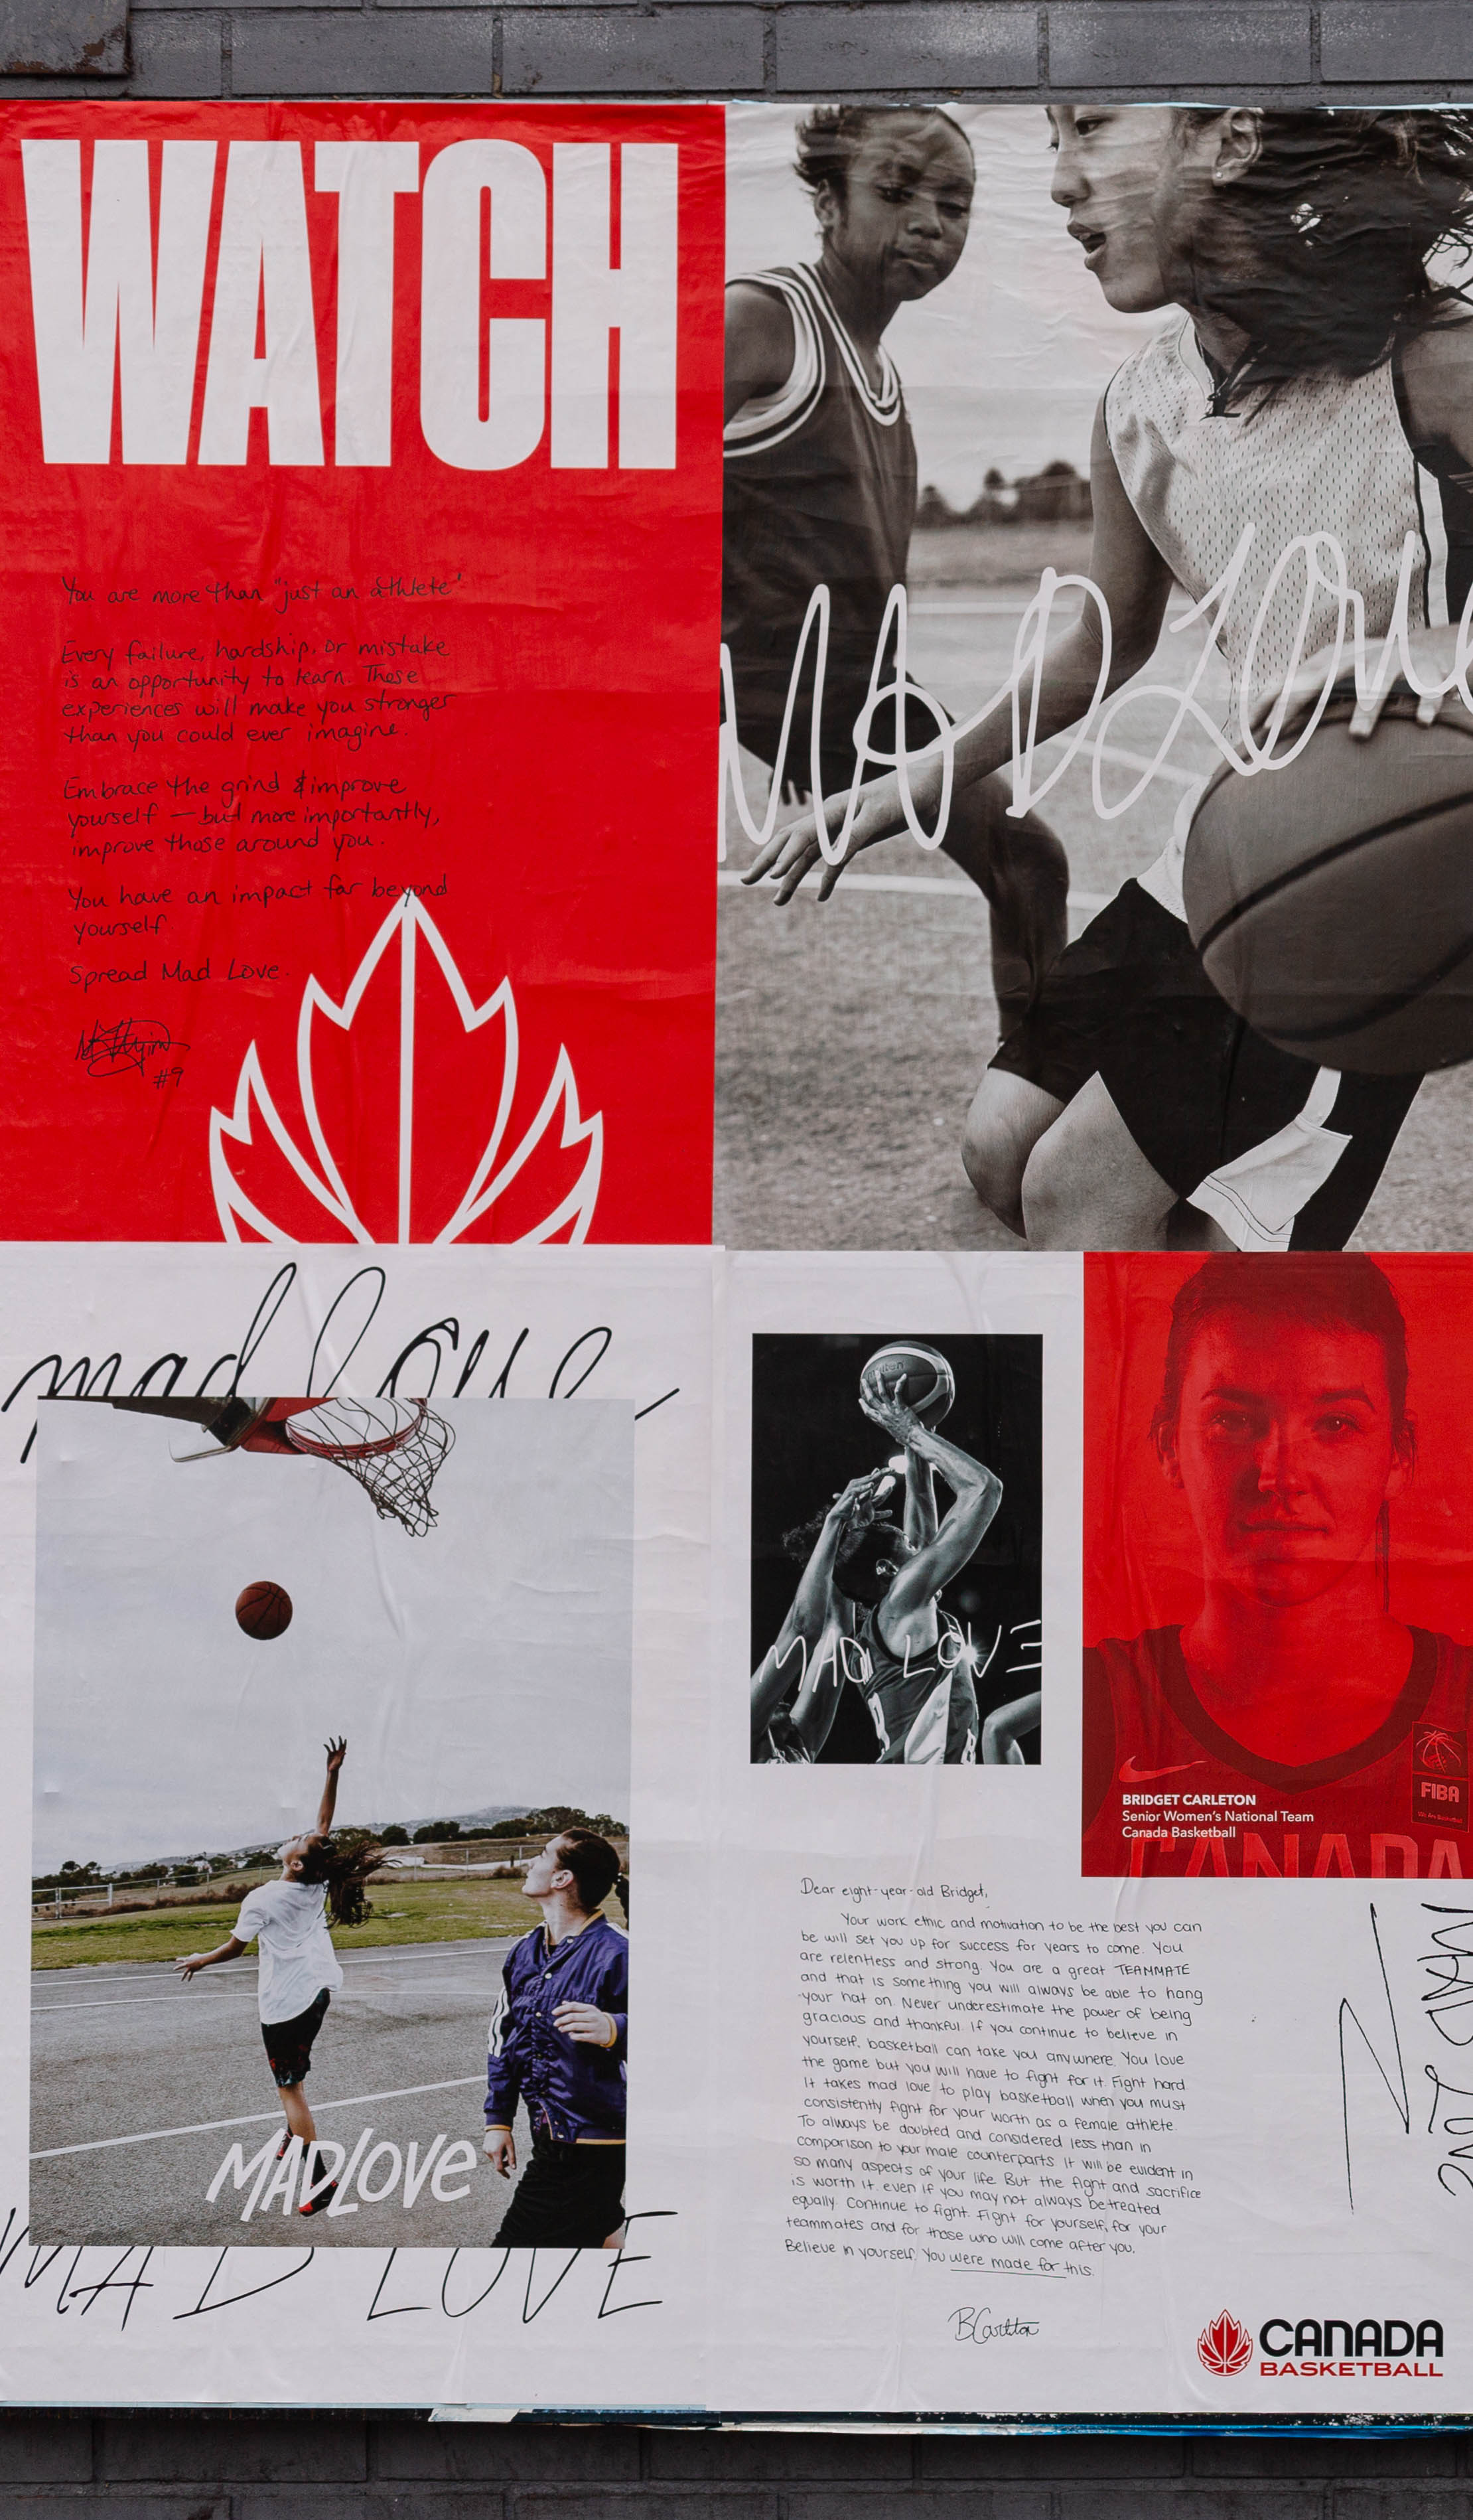 WATCH
You are more than "just an athlete"
Every failure, hardship, or mistake
is an opportunity to learn. These
experiences will make you stronger
than you could ever imagine.
Embrace the grind & improve
yourself — but more importantly,
improve those around you.
You have an impact far beyond
yourself
Spread Mad Love.
#9
MADLOVE
mad love
MADLOVE
MAD LOVE
MAD LOVE
BRIDGET CARLETON
Senior Women's National Team
Canada Basketball
FIBA
We Are Basketball
CANADA
Dear eight-year-old Bridget,
Your work ethic and motivation to be the best you can
be will set you up for success for years to come. You
are relentless and strong. You are a great TEAMMATE
and that is something you will always be able to hang
your hat on. Never underestimate the power of being
gracious and thankful. If you continue to believe in
yourself, basketball can take you anywhere. You love
the game but you will have to fight for it. Fight hard
It takes mad love to play basketball when you must
consistently fight for your worth as a female athlete.
To always be doubted and considered less than in
comparison to your male counterparts. It will be evident in
so many aspects of your life. But the fight and sacrifice
is worth it. even if you may not always be treated
equally. Continue to fight. Fight for yourself, for your
teammates and for those who will come after you.
Believe in yourself. You were made for this.
BCarleton
MAD LOVE
CANADA
BASKETBALL